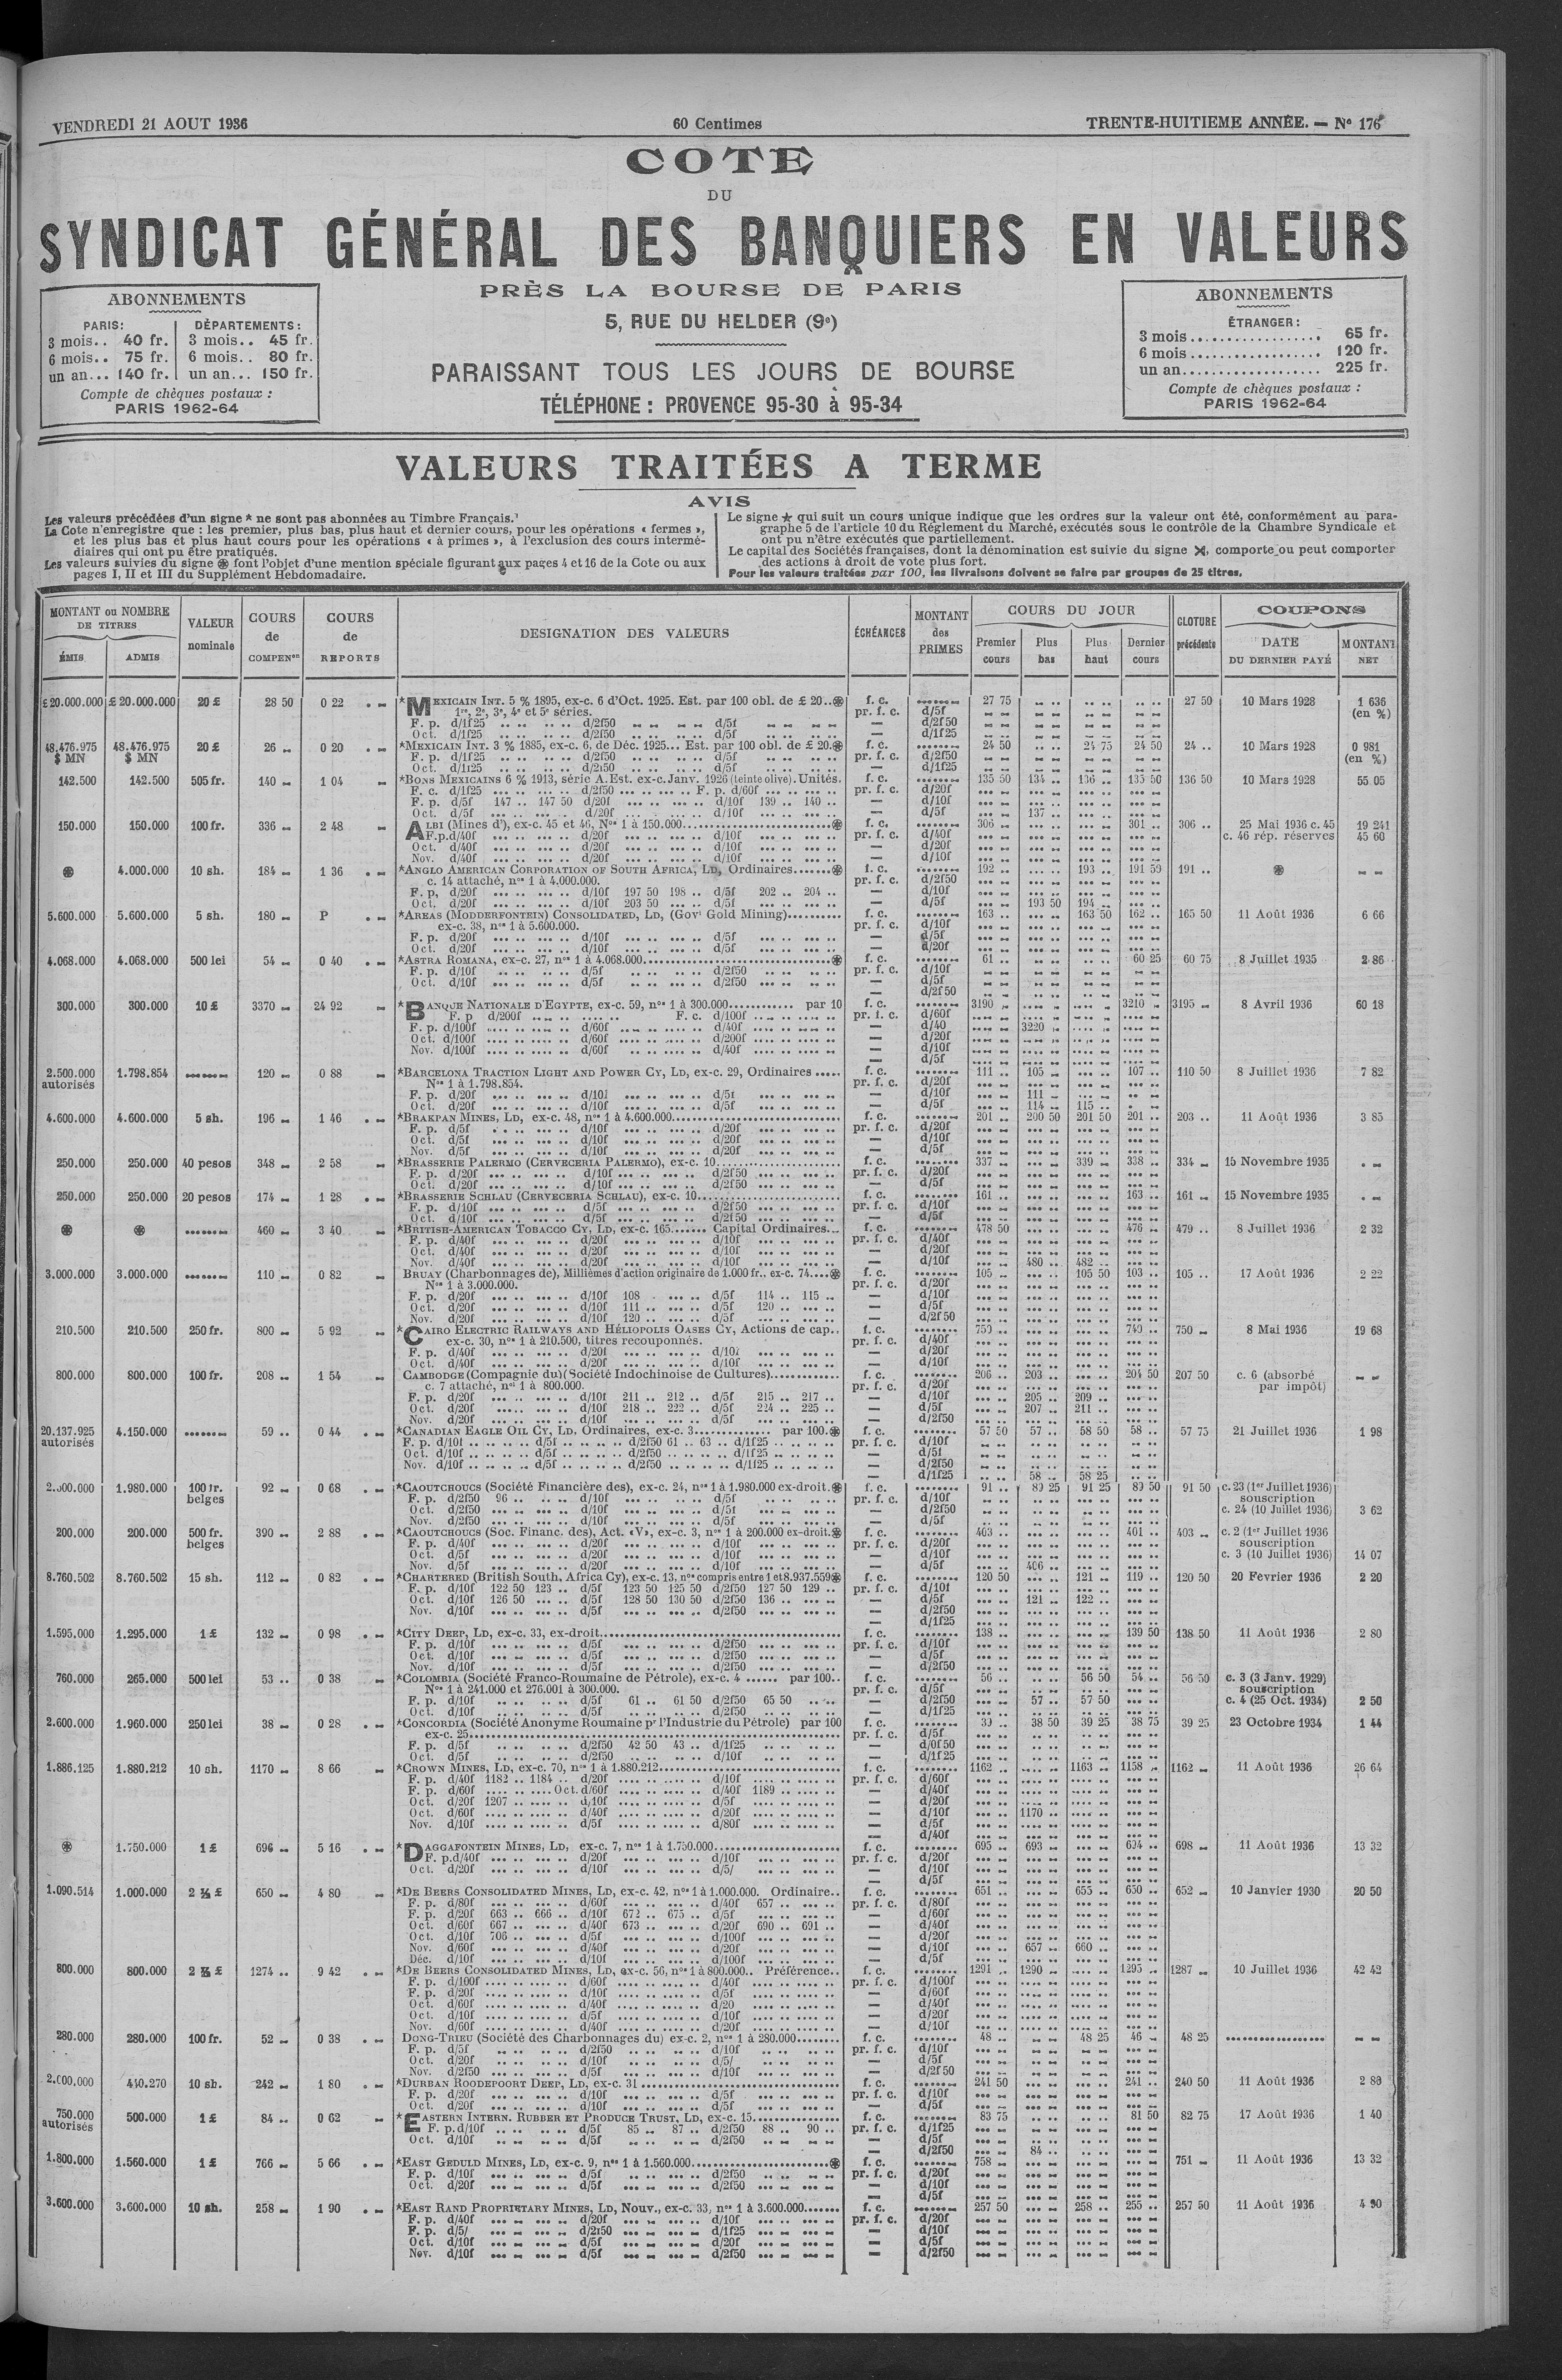 VENDREDI 21 AOUT 1936 60 Centimes TRENTE-HUITIEME ANNÉE. — N° 176
COTE
DU
SYNDICAT GÉNÉRAL DES BANQUIERS EN VALEURS
PRÈS LA BOURSE DE PARIS
5, RUE DU HELDER (9e)
PARAISSANT TOUS LES JOURS DE BOURSE
TÉLÉPHONE : PROVENCE 95-30 à 95-34
ABONNEMENTS
PARIS: DÉPARTEMENTS:
3 mois.. 40 fr. 3 mois.. 45 fr.
6 mois.. 75 fr. 6 mois.. 80 fr.
un an... 140 fr. un an... 150 fr.
Compte de chèques postaux :
PARIS 1962-64
ABONNEMENTS
ÉTRANGER :
3 mois ................ 65 fr.
6 mois ................ 120 fr.
un an.................. 225 fr.
Compte de chèques postaux :
PARIS 1962-64
VALEURS TRAITÉES A TERME
AVIS
Les valeurs précédées d'un signe * ne sont pas abonnées au Timbre Français.
La Cote n'enregistre que : les premier, plus bas, plus haut et dernier cours, pour les opérations « fermes »,
et les plus bas et plus haut cours pour les opérations « à primes », à l'exclusion des cours intermé-
diaires qui ont pu être pratiqués.
Les valeurs suivies du signe ⊛ font l'objet d'une mention spéciale figurant aux pages 4 et 16 de la Cote ou aux
pages I, II et III du Supplément Hebdomadaire.
Le signe ★ qui suit un cours unique indique que les ordres sur la valeur ont été, conformément au para-
graphe 5 de l'article 10 du Réglement du Marché, exécutés sous le contrôle de la Chambre Syndicale et
ont pu n'être exécutés que partiellement.
Le capital des Sociétés françaises, dont la dénomination est suivie du signe ⋊, comporte ou peut comporter
des actions à droit de vote plus fort.
Pour les valeurs traitées par 100, les livraisons doivent se faire par groupes de 25 titres.
MONTANT ou NOMBRE DE TITRES ÉMIS ADMIS VALEUR nominale COURS de COMPENon COURS de REPORTS DESIGNATION DES VALEURS ÉCHÉANCES MONTANT des PRIMES COURS DU JOUR Premier cours Plus bas Plus haut Dernier cours CLOTURE précédente COUPONS DATE DU DERNIER PAYÉ MONTANT NET
£ 20.000.000 £ 20.000.000 20 £ 28 50 0 22 *MEXICAIN INT. 5 % 1895, ex-c. 6 d'Oct. 1925. Est. par 100 obl. de £ 20..⊛ f. c. 27 75 27 50 10 Mars 1928 1 636
1re, 2e, 3e, 4e et 5e séries. pr. f. c. d/5f (en %)
F. p. d/1f25 d/2f50 d/5f — d/2f50
Oct. d/1f25 d/2f50 d/5f — d/1f25
48.476.975 48.476.975 20 £ 26 0 20 *MEXICAIN INT. 3 % 1885, ex-c. 6, de Déc. 1925... Est. par 100 obl. de £ 20.⊛ f. c. 24 50 24 75 24 50 24 .. 10 Mars 1928 0 981
$ MN $ MN F. p. d/1f25 d/2f50 d/5f pr. f. c. d/2f50 (en %)
Oct. d/1f25 d/2f50 d/5f — d/1f25
142.500 142.500 505 fr. 140 1 04 *BONS MEXICAINS 6 % 1913, série A. Est. ex-c. Janv. 1926 (teinte olive). Unités. f. c. 135 50 134 .. 136 .. 135 50 136 50 10 Mars 1928 55 05
F. c. d/1f25 d/2f50 F. p. d/60f pr. f. c. d/20f
F. p. d/5f 147 .. 147 50 d/20f d/10f 139 .. 140 .. — d/10f
Oct. d/5f d/20f d/10f — d/5f 137 ..
150.000 150.000 100 fr. 336 2 48 ALBI (Mines d'), ex-c. 45 et 46, Nos 1 à 150.000 ⊛ f. c. 306 .. 301 .. 306 .. 25 Mai 1936 c. 45 19 241
F.p. d/40f d/20f d/10f pr. f. c. d/40f c. 46 rép. réserves 45 60
Oct. d/40f d/20f d/10f — d/20f
Nov. d/40f d/20f d/10f — d/10f
⊛ 4.000.000 10 sh. 184 1 36 *ANGLO AMERICAN CORPORATION OF SOUTH AFRICA, LD, Ordinaires.......⊛ f. c. 192 .. 193 .. 191 50 191 .. ⊛
c. 14 attaché, nos 1 à 4.000.000. pr. f. c. d/2f50
F. p. d/20f d/10f 197 50 198 .. d/5f 202 .. 204 .. — d/10f
Oct. d/20f d/10f 203 50 d/5f — d/5f 193 50 194 ..
5.600.000 5.600.000 5 sh. 180 P *AREAS (MODDERFONTEIN) CONSOLIDATED, LD, (Govt Gold Mining).......... f. c. 163 .. 163 50 162 .. 165 50 11 Août 1936 6 66
ex-c. 38, nos 1 à 5.600.000. pr. f. c. d/10f
F. p. d/20f d/10f d/5f — d/5f
Oct. d/20f d/10f d/5f — d/20f
4.068.000 4.068.000 500 lei 54 0 40 *ASTRA ROMANA, ex-c. 27, nos 1 à 4.068.000 ⊛ f. c. 61 .. 60 25 60 75 8 Juillet 1935 2 86
F. p. d/10f d/5f d/2f50 pr. f. c. d/10f
Oct. d/10f d/5f d/2f50 — d/5f
— d/2f50
300.000 300.000 10 £ 3370 24 92 *BANQUE NATIONALE D'EGYPTE, ex-c. 59, nos 1 à 300.000............ par 10 f. c. 3190 3210 3195 8 Avril 1936 60 18
F. p d/200f F. c. d/100f pr. f. c. d/60f
F. p. d/100f d/60f d/40f — d/40 3220
Oct. d/100f d/60f d/200f — d/20f
Nov. d/100f d/60f d/40f — d/10f
— d/5f
2.500.000 1.798.854 120 0 88 *BARCELONA TRACTION LIGHT AND POWER CY, LD, ex-c. 29, Ordinaires ..... f. c. 111 .. 105 107 .. 110 50 8 Juillet 1936 7 82
autorisés Nos 1 à 1.798.854. pr. f. c. d/20f
F. p. d/20f d/10f d/5f — d/10f 111
Oct. d/20f d/10f d/5f — d/5f 114 .. 115 ..
4.600.000 4.600.000 5 sh. 196 1 46 *BRAKPAN MINES, LD, ex-c. 48, nos 1 à 4.600.000 f. c. 201 .. 200 50 201 50 201 .. 203 .. 11 Août 1936 3 85
F. p. d/5f d/10f d/20f pr. f. c. d/20f
Oct. d/5f d/10f d/20f — d/10f
Nov. d/5f d/10f d/20f — d/5f
250.000 250.000 40 pesos 348 2 58 *BRASSERIE PALERMO (CERVECERIA PALERMO), ex-c. 10 f. c. 337 339 338 .. 334 15 Novembre 1935
F. p. d/20f d/10f d/2f50 pr. f. c. d/20f
Oct. d/20f d/10f d/2f50 — d/5f
250.000 250.000 20 pesos 174 1 28 *BRASSERIE SCHLAU (CERVECERIA SCHLAU), ex-c. 10 f. c. 161 .. 163 .. 161 15 Novembre 1935
F. p. d/10f d/5f d/2f50 pr. f. c. d/10f
Oct. d/10f d/5f d/2f50 — d/5f
⊛ ⊛ 460 3 40 *BRITISH-AMERICAN TOBACCO CY, LD, ex-c. 165....... Capital Ordinaires.. f. c. 478 50 476 479 .. 8 Juillet 1936 2 32
F. p. d/40f d/20f d/10f pr. f. c. d/40f
Oct. d/40f d/20f d/10f — d/20f
Nov. d/40f d/20f d/10f — d/10f 480 .. 482 ..
3.000.000 3.000.000 110 0 82 BRUAY (Charbonnages de), Millièmes d'action originaire de 1.000 fr.. ex-c. 74....⊛ f. c. 105 105 50 103 .. 105 .. 17 Août 1936 2 22
Nos 1 à 3.000.000. pr. f. c. d/20f
F. p. d/20f d/10f 108 d/5f 114 .. 115 .. — d/10f
Oct. d/20f d/10f 111 .. d/5f 120 .. — d/5f
Nov. d/20f d/10f 120 .. d/5f — d/2f50
210.500 210.500 250 fr. 800 5 92 *CAIRO ELECTRIC RAILWAYS AND HÉLIOPOLIS OASES CY, Actions de cap.. f. c. 750 .. 740 .. 750 8 Mai 1936 19 68
ex-c. 30, nos 1 à 210.500, titres recouponnés. pr. f. c. d/40f
F. p. d/40f d/20f d/10f — d/20f
Oct. d/40f d/20f d/10f — d/10f
800.000 800.000 100 fr. 208 1 54 CAMBODGE (Compagnie du)(Société Indochinoise de Cultures)............. f. c. 206 .. 203 .. 204 50 207 50 c. 6 (absorbé
c. 7 attaché, nos 1 à 800.000. pr. f. c. d/20f par impôt)
F. p. d/20f d/10f 211 .. 212 .. d/5f 215 .. 217 .. — d/10f 205 .. 209 ..
Oct. d/20f d/10f 218 .. 222 .. d/5f 224 .. 225 .. — d/5f 207 .. 211 ..
Nov. d/20f d/10f d/5f — d/2f50
20.137.925 4.150.000 59 .. 0 44 *CANADIAN EAGLE OIL CY, LD, Ordinaires, ex-c. 3............. par 100.⊛ f. c. 57 50 57 .. 58 50 58 .. 57 75 21 Juillet 1936 1 98
autorisés F. p. d/10f d/5f d/2f50 61 .. 63 .. d/1f25 pr. f. c. d/10f
Oct. d/10f d/5f d/2f50 d/1f25 — d/5f
Nov. d/10f d/5f d/2f50 d/1f25 — d/2f50
— d/1f25 58 .. 58 25
1.980.000 100 fr. 92 0 68 *CAOUTCHOUCS (Société Financière des), ex-c. 24, nos 1 à 1.980.000 ex-droit.⊛ f. c. 91 .. 89 25 91 25 89 50 91 50 c. 23 (1er Juillet 1936)
belges F. p. d/2f50 96 .. d/10f d/5f pr. f. c. d/10f souscription
Oct. d/2f50 d/10f d/5f — d/2f50 c. 24 (10 Juillet 1936) 3 62
Nov. d/2f50 d/10f d/5f — d/5f
200.000 200.000 500 fr. 390 .. 2 88 *CAOUTCHOUCS (Soc. Financ. des), Act. «V», ex-c. 3, nos 1 à 200.000 ex-droit.⊛ f. c. 403 .. 401 .. 403 c. 2 (1er Juillet 1936
belges F. p. d/40f d/20f d/10f pr. f. c. d/20f souscription
Oct. d/5f d/20f d/10f — d/10f c. 3 (10 Juillet 1936) 14 07
Nov. d/5f d/20f d/10f — d/5f 406 ..
8.760.502 8.760.502 15 sh. 112 0 82 *CHARTERED (British South, Africa Cy), ex-c. 13, nos compris entre 1 et 8.937.559⊛ f. c. 120 50 121 .. 119 .. 120 50 20 Février 1936 2 20
F. p. d/10f 122 50 123 .. d/5f 123 50 125 50 d/2f50 127 50 129 .. pr. f. c. d/10f
Oct. d/10f 126 50 d/5f 128 50 130 50 d/2f50 136 .. — d/5f 121 .. 122 ..
Nov. d/10f d/5f d/2f50 — d/2f50
— d/1f25
1.595.000 1.295.000 1 £ 132 0 98 *CITY DEEP, LD, ex-c. 33, ex-droit f. c. 138 .. 139 50 138 50 11 Août 1936 2 80
F. p. d/10f d/5f d/2f50 pr. f. c. d/10f
Oct. d/10f d/5f d/2f50 — d/5f
Nov. d/10f d/5f d/2f50 — d/2f50
760.000 265.000 500 lei 53 .. 0 38 *COLOMBIA (Société Franco-Roumaine de Pétrole), ex-c. 4 ...... par 100.. f. c. 56 .. 56 50 54 .. 56 50 c. 3 (3 Janv. 1929)
Nos 1 à 241.000 et 276.001 à 300.000. pr. f. c. d/5f souscription
F. p. d/10f d/5f 61 .. 61 50 d/2f50 65 50 — d/2f50 57 .. 57 50 c. 4 (25 Oct. 1934) 2 50
Oct. d/10f d/5f d/2f50 — d/1f25
2.600.000 1.960.000 250 lei 38 0 28 *CONCORDIA (Société Anonyme Roumaine pr l'Industrie du Pétrole) par 100 f. c. 39 .. 38 50 39 25 38 75 39 25 23 Octobre 1934 1 44
ex-c. 25 pr. f. c. d/5f
F. p. d/5f d/2f50 42 50 43 .. d/1f25 — d/0f50
Oct. d/5f d/2f50 d/10f — d/1f25
1.886.125 1.880.212 10 sh. 1170 8 66 *CROWN MINES, LD, ex-c. 70, nos 1 à 1.880.212 f. c. 1162 .. 1163 1158 1162 11 Août 1936 26 64
F. p. d/40f 1182 .. 1184 .. d/20f d/10f pr. f. c. d/60f
F. p. d/60f Oct. d/60f d/40f 1189 — d/40f
Oct. d/20f 1207 d/10f d/5f — d/20f
Oct. d/60f d/40f d/20f — d/10f 1170
Nov. d/10f d/5f d/80f — d/5f
— d/40f
⊛ 1.750.000 1 £ 696 5 16 *DAGGAFONTEIN MINES, LD, ex-c. 7, nos 1 à 1.750.000 f. c. 695 .. 693 694 .. 698 11 Août 1936 13 32
F. p. d/40f d/20f d/10f pr. f. c. d/20f
Oct. d/20f d/10f d/5/ — d/10f
— d/5f
1.090.514 1.000.000 2 ½ £ 650 4 80 *DE BEERS CONSOLIDATED MINES, LD, ex-c. 42, nos 1 à 1.000.000. Ordinaire.. f. c. 651 .. 655 .. 650 .. 652 10 Janvier 1930 20 50
F. p. d/80f d/60f d/40f 657 .. pr. f. c. d/80f
F. p. d/20f 663 .. 666 .. d/10f 672 .. 675 .. d/5f — d/60f
Oct. d/60f 667 .. d/40f 673 .. d/20f 690 .. 691 .. — d/40f
Oct. d/10f 706 .. d/5f d/100f — d/20f
Nov. d/60f d/40f d/20f — d/10f 657 .. 660 ..
Déc. d/10f d/10f d/100f — d/5f
800.000 800.000 2 ½ £ 1274 .. 9 42 *DE BEERS CONSOLIDATED MINES, LD, ex-c. 56, nos 1 à 800.000.. Préférence.. f. c. 1291 1290 1295 1287 10 Juillet 1936 42 42
F. p. d/100f d/60f d/40f pr. f. c. d/100f
F. p. d/20f d/10f d/5f — d/60f
Oct. d/60f d/40f d/20 — d/40f
Oct. d/10f d/5f d/10f — d/20f
Nov. d/60f d/40f d/20f — d/10f
280.000 280.000 100 fr. 52 0 38 DONG-TRIEU (Société des Charbonnages du) ex-c. 2, nos 1 à 280.000........ f. c. 48 .. 48 25 46 48 25
F. p. d/5f d/2f50 d/10f pr. f. c. d/10f
Oct. d/20f d/10f d/5/ — d/5f
Nov. d/2f50 d/5f d/10f — d/2f50
2.000.000 440.270 10 sh. 242 1 80 *DURBAN ROODEPOORT DEEP, LD, ex-c. 31 f. c. 241 50 241 .. 240 50 11 Août 1936 2 80
F. p. d/20f d/10f d/5f pr. f. c. d/10f
Oct. d/20f d/10f d/5f — d/5f
750.000 500.000 1 £ 84 .. 0 62 *EASTERN INTERN. RUBBER ET PRODUCE TRUST, LD, ex-c. 15 f. c. 83 75 81 50 82 75 17 Août 1936 1 40
autorisés F. p. d/10f d/5f 85 .. 87 .. d/2f50 88 .. 90 .. pr. f. c. d/1f25
Oct. d/10f d/5f d/2f50 — d/5f
— d/2f50 84 ..
1.800.000 1.560.000 1 £ 766 5 66 *EAST GEDULD MINES, LD, ex-c. 9, nos 1 à 1.560.000 ⊛ f. c. 758 751 11 Août 1936 13 32
F. p. d/10f d/5f d/2f50 pr. f. c. d/20f
Oct. d/20f d/5f d/2f50 — d/10f
— d/5f
3.600.000 3.600.000 10 sh. 258 1 90 *EAST RAND PROPRIETARY MINES, LD, Nouv., ex-c. 33, nos 1 à 3.600.000....... f. c. 257 50 258 .. 255 .. 257 50 11 Août 1936 4 90
F. p. d/40f d/20f d/10f pr. f. c. d/20f
F. p. d/5/ d/2f50 d/1f25 — d/10f
Oct. d/10f d/5f d/20f — d/5f
Nov. d/10f d/5f d/2f50 — d/2f50